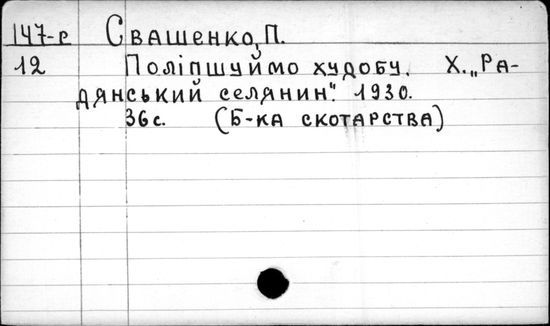 147-р Сващенко, П.
12 Поліпшуймо худобу. Х. „Ра-
дянський селянин". 1930.
36 с. (Б-ка скотарства)